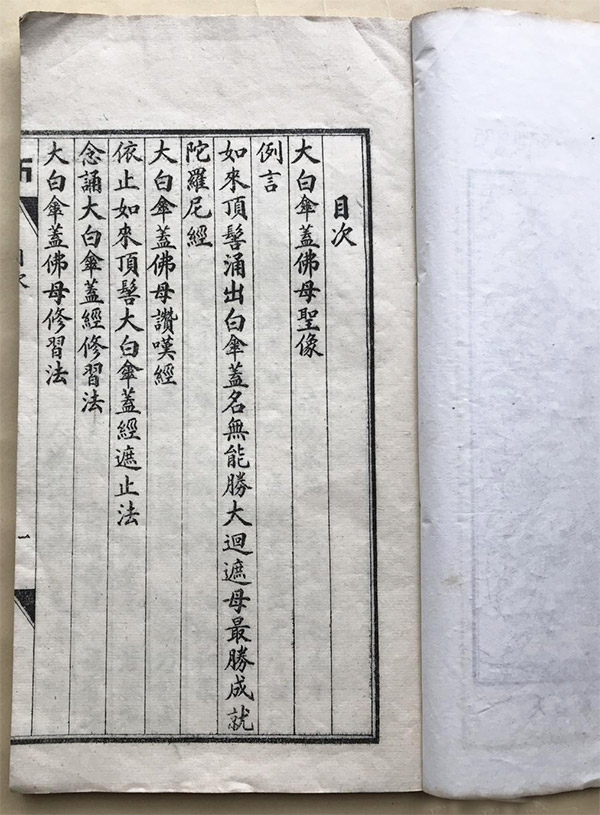 目次
大白傘蓋佛母聖像
例言
如來頂髻涌出白傘蓋名無能勝大迴遮母最勝成就
陀羅尼經
大白傘蓋佛母讚嘆經
依止如來頂髻大白傘蓋經遮止法
念誦大白傘蓋經修習法
大白傘蓋佛母修習法
目次
一